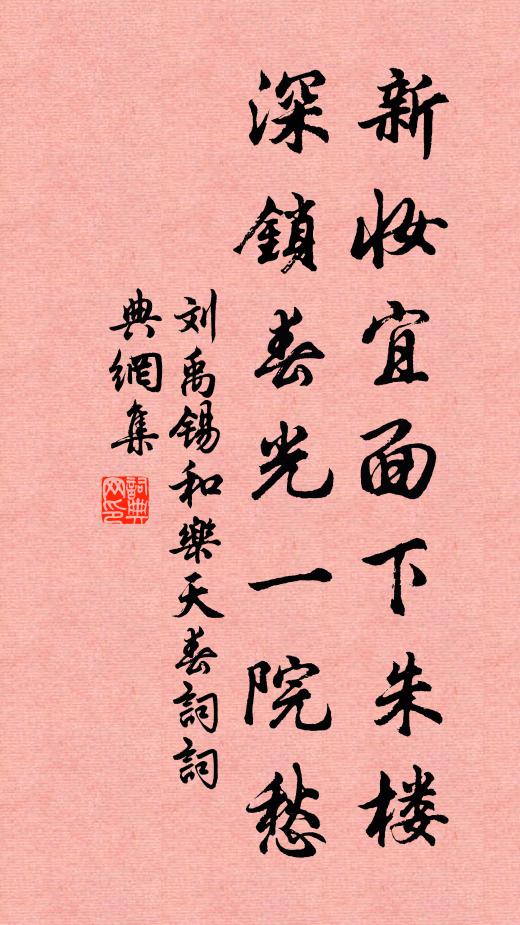 新妝宜面下朱楼
深鎖春光一院愁
刘禹锡和樂天春詞詞
典網集
詞典
网印